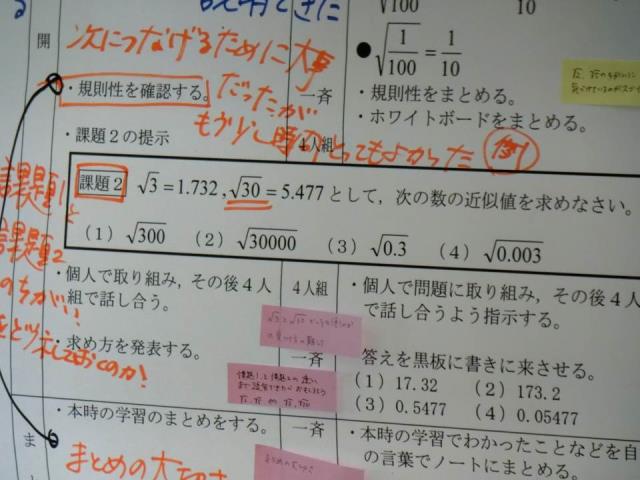 開
次につなげるために大事
・規則性を確認する。
だったが
もう少し時間とってもよかった
一斉
√1/100 = 1/10
・規則性をまとめる。
・ホワイトボードをまとめる。
・課題2の提示
4人組
課題2 √3=1.732,√30=5.477として,次の数の近似値を求めなさい。
(1) √300 (2) √30000 (3) √0.3 (4) √0.003
課題1と
課題2
のちがい
・個人で取り組み,その後4人
組で話し合う。
4人組
・個人で問題に取り組み,その後4人
で話し合うよう指示する。
・求め方を発表する。
一斉
答えを黒板に書きに来させる。
(1) 17.32 (2) 173.2
(3) 0.5477 (4) 0.05477
課題1と課題2の違い
・本時の学習のまとめをする。
一斉
・本時の学習でわかったことなどを自
の言葉でノートにまとめる。
ま
まとめの大切さ